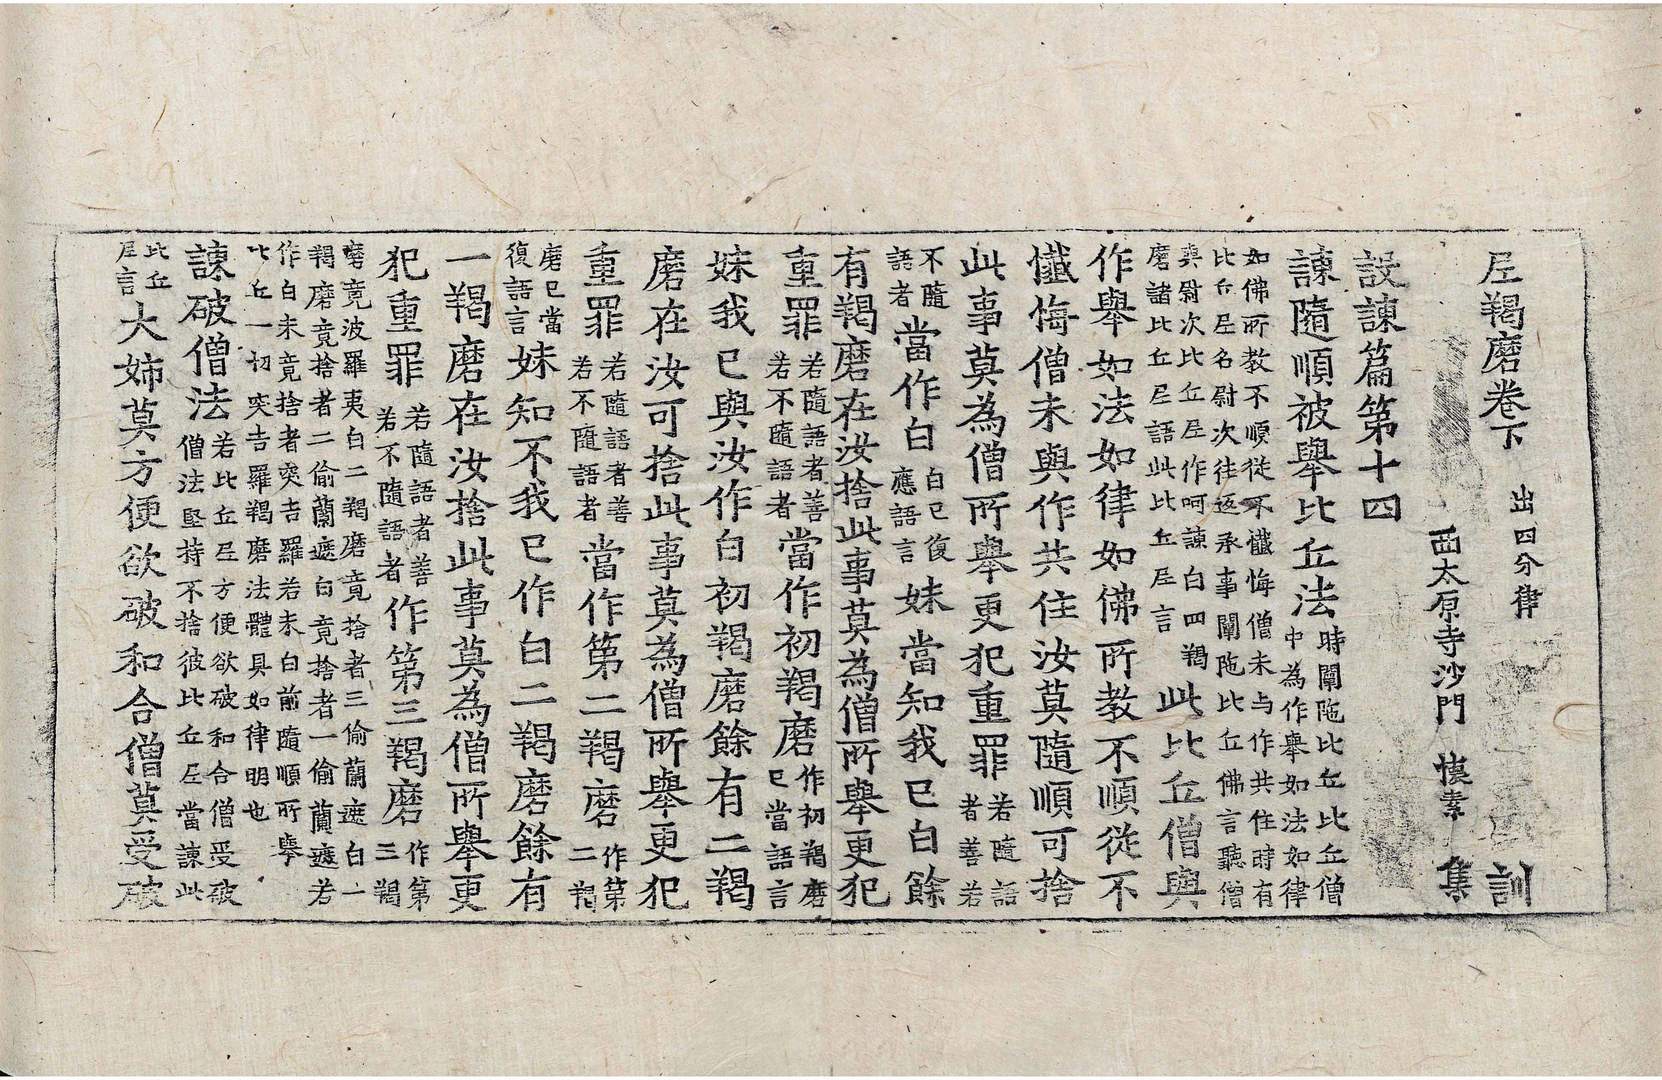 尼羯磨卷下 出四分律 訓
西太原寺沙門 懷素 集
設諫篇第十四
諫隨順被舉比丘法時闡陁比丘比丘僧中為作舉如法如律
如佛所教不順從不懺悔僧未与作共住時有比丘尼名尉次往返承事闡陁比丘佛言聽僧
與尉次比丘尼作呵諫白四羯磨諸比丘尼語此比丘尼言此比丘僧與
作舉如法如律如佛所教不順從不
懺悔僧未與作共住汝莫隨順可捨
此事莫為僧所舉更犯重罪若隨語者善若
不隨語者當作白白已復應語言妹當知我已白餘
有羯磨在汝捨此事莫為僧所舉更犯
重罪若隨語者善若不隨語者當作初羯磨作初羯磨已當語言
妹我已與汝作白初羯磨餘有二羯
磨在汝可捨此事莫為僧所舉更犯
重罪若隨語者善若不隨語者當作第二羯磨作第二羯
磨已當復語言妹知不我已作白二羯磨餘有
一羯磨在汝捨此事莫為僧所舉更
犯重罪若隨語者善若不隨語者作第三羯磨作第三羯
磨竟波羅夷白二羯磨竟捨者三偷蘭遮白一羯磨竟捨者二偷蘭遮白竟捨者一偷蘭遮若
作白未竟捨者突吉羅若未白前隨順所舉比丘一切突吉羅羯磨法體具如律明也
諫破僧法若比丘尼方便欲破和合僧受破僧法堅持不捨彼比丘尼當諫此
比丘尼言大姉莫方便欲破和合僧莫受破